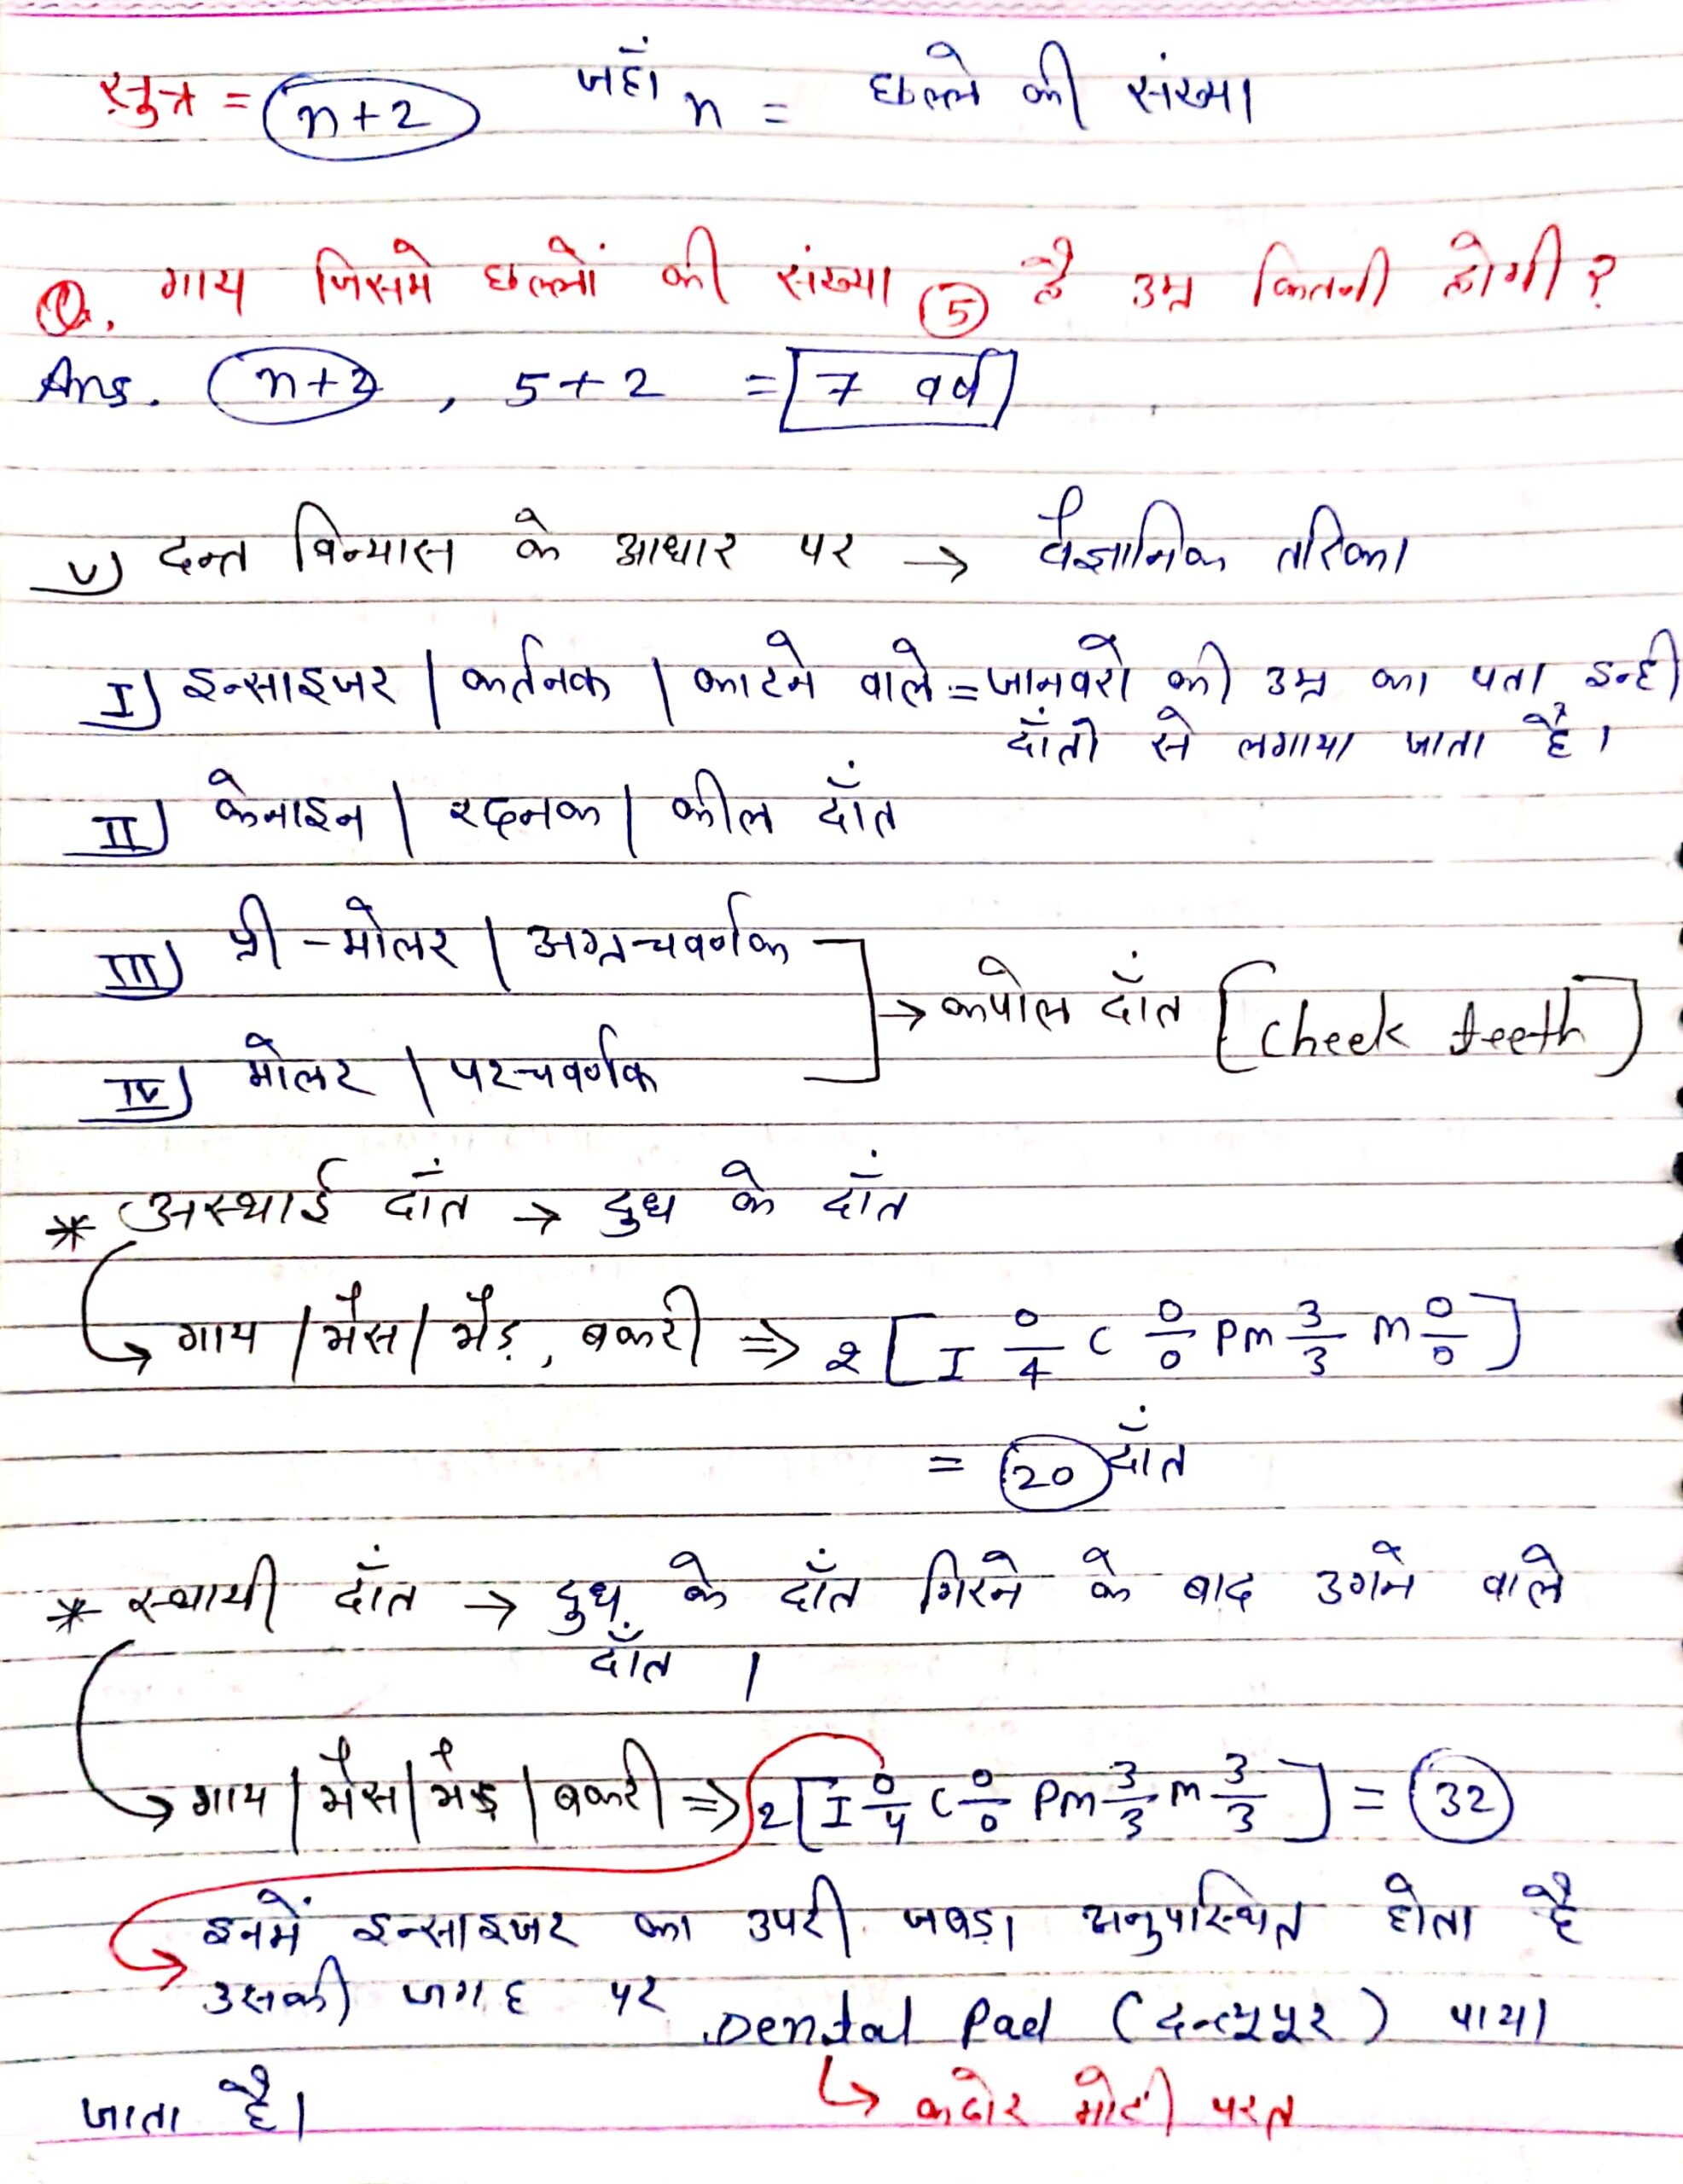 सुत्र = n+2 जहाँ n = छल्ले की संख्या
Q. गाय जिसमे छल्लों की संख्या 5 है उम्र कितनी होगी ?
Ans. n+2 , 5+2 = 7 वर्ष
V) दन्त विन्यास के आधार पर → वैज्ञानिक तरिका
I) इन्साइजर | कर्तनक | काटने वाले = जानवरो की उम्र का पता इन्ही
दाँतो से लगाया जाता है।
II) केनाइन | रदनक | कील दाँत
III) प्री-मोलर | अग्रचवर्णक
→ कपोल दाँत [Cheek teeth]
IV) मोलर | परचवर्णक
* अस्थाई दाँत → दुध के दाँत
गाय | भैंस | भैड़, बकरी ⇒ 2 [ I 0/4 C 0/0 Pm 3/3 m 0/0 ]
= 20 दाँत
* स्थायी दाँत → दुध के दाँत गिरने के बाद उगने वाले
दाँत |
गाय | भैंस | भैड़ | बकरी ⇒ 2 [ I 0/4 C 0/0 Pm 3/3 m 3/3 ] = 32
इनमें इन्साइजर का उपरी जबड़ा अनुपस्थित होता है
उसकी जगह पर Dental Pad ( ) पाया
जाता है।
कठोर मोटी परत